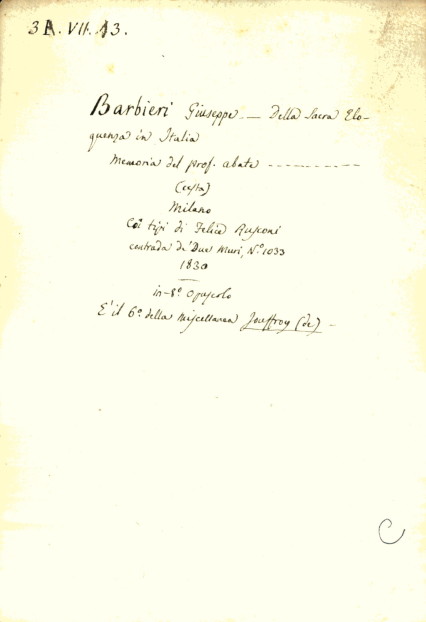 3A.VII.13.
Barbieri Giuseppe — Della Sacra Elo-
quenza in Italia
Memoria del prof. abate -----------
(cesta)
Milano
Coi tipi di Felice Rusconi
contrada de' Due Muri, N.º 1033
1830
in-8.º Opuscolo
E' il 6.º della Miscellanea Jouffroy (de) -
C